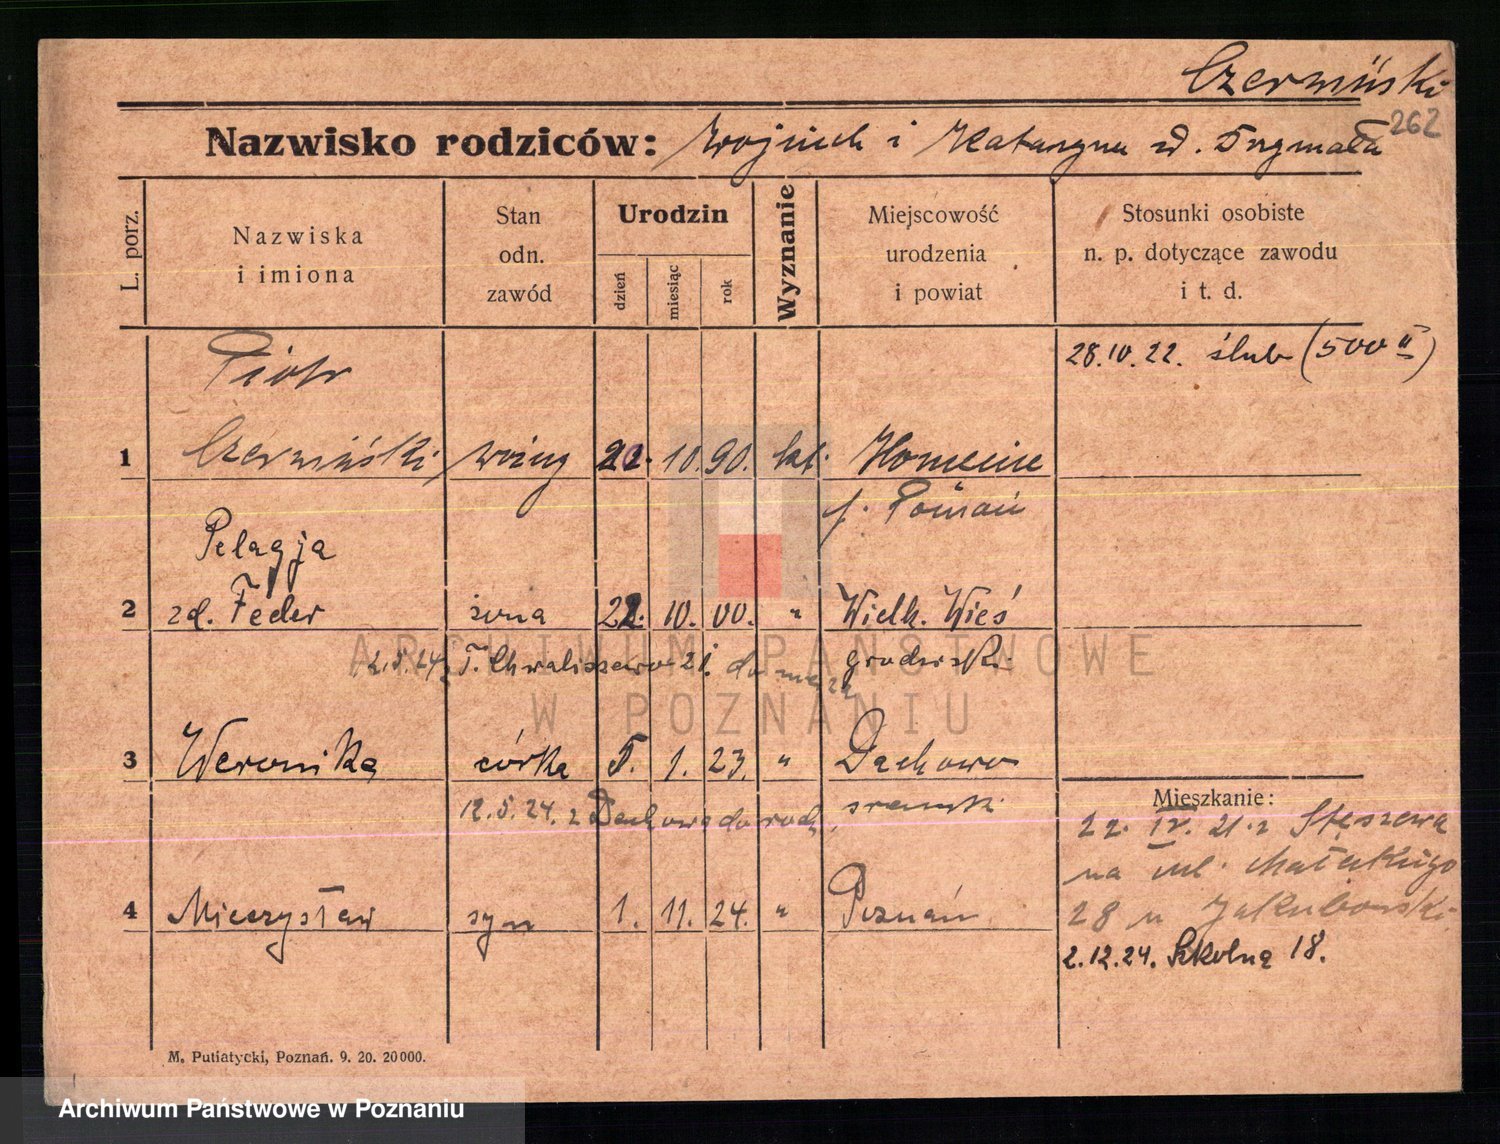 Czerwiński
262
Nazwisko rodziców: Wojciech i Katarzyna zd. Przymała
L. porz.
Nazwiska i imiona
Stan odn. zawód
Urodzin
dzień
miesiąc
rok
Wyznanie
Miejscowość urodzenia i powiat
Stosunki osobiste n. p. dotyczące zawodu i t. d.
Piotr
28.10.22. ślub (500 II)
1 Czerwiński woźny 22. 10. 90. kat.
p. Poznań
Pelagja
2 zd. Feder żona 22. 10. 00. " Wielk. Wieś
12.5.24 z T. Chwaliszewo 21. do męża
grodzisk
3 Weronika córka 5. 1. 23. " Dachowo
Mieszkanie:
12.5.24. z Dachowa do rodz.
śremski
22. IV. 21. z Stęszewa
na ul. Małeckiego
4 Mieczysław syn 1. 11. 24. " Poznań
28 u Jakubowski
2.12.24. Szkolna 18.
M. Putiatycki, Poznań. 9. 20. 20000.
ARCHIWUM PAŃSTWOWE
W POZNANIU
Archiwum Państwowe w Poznaniu